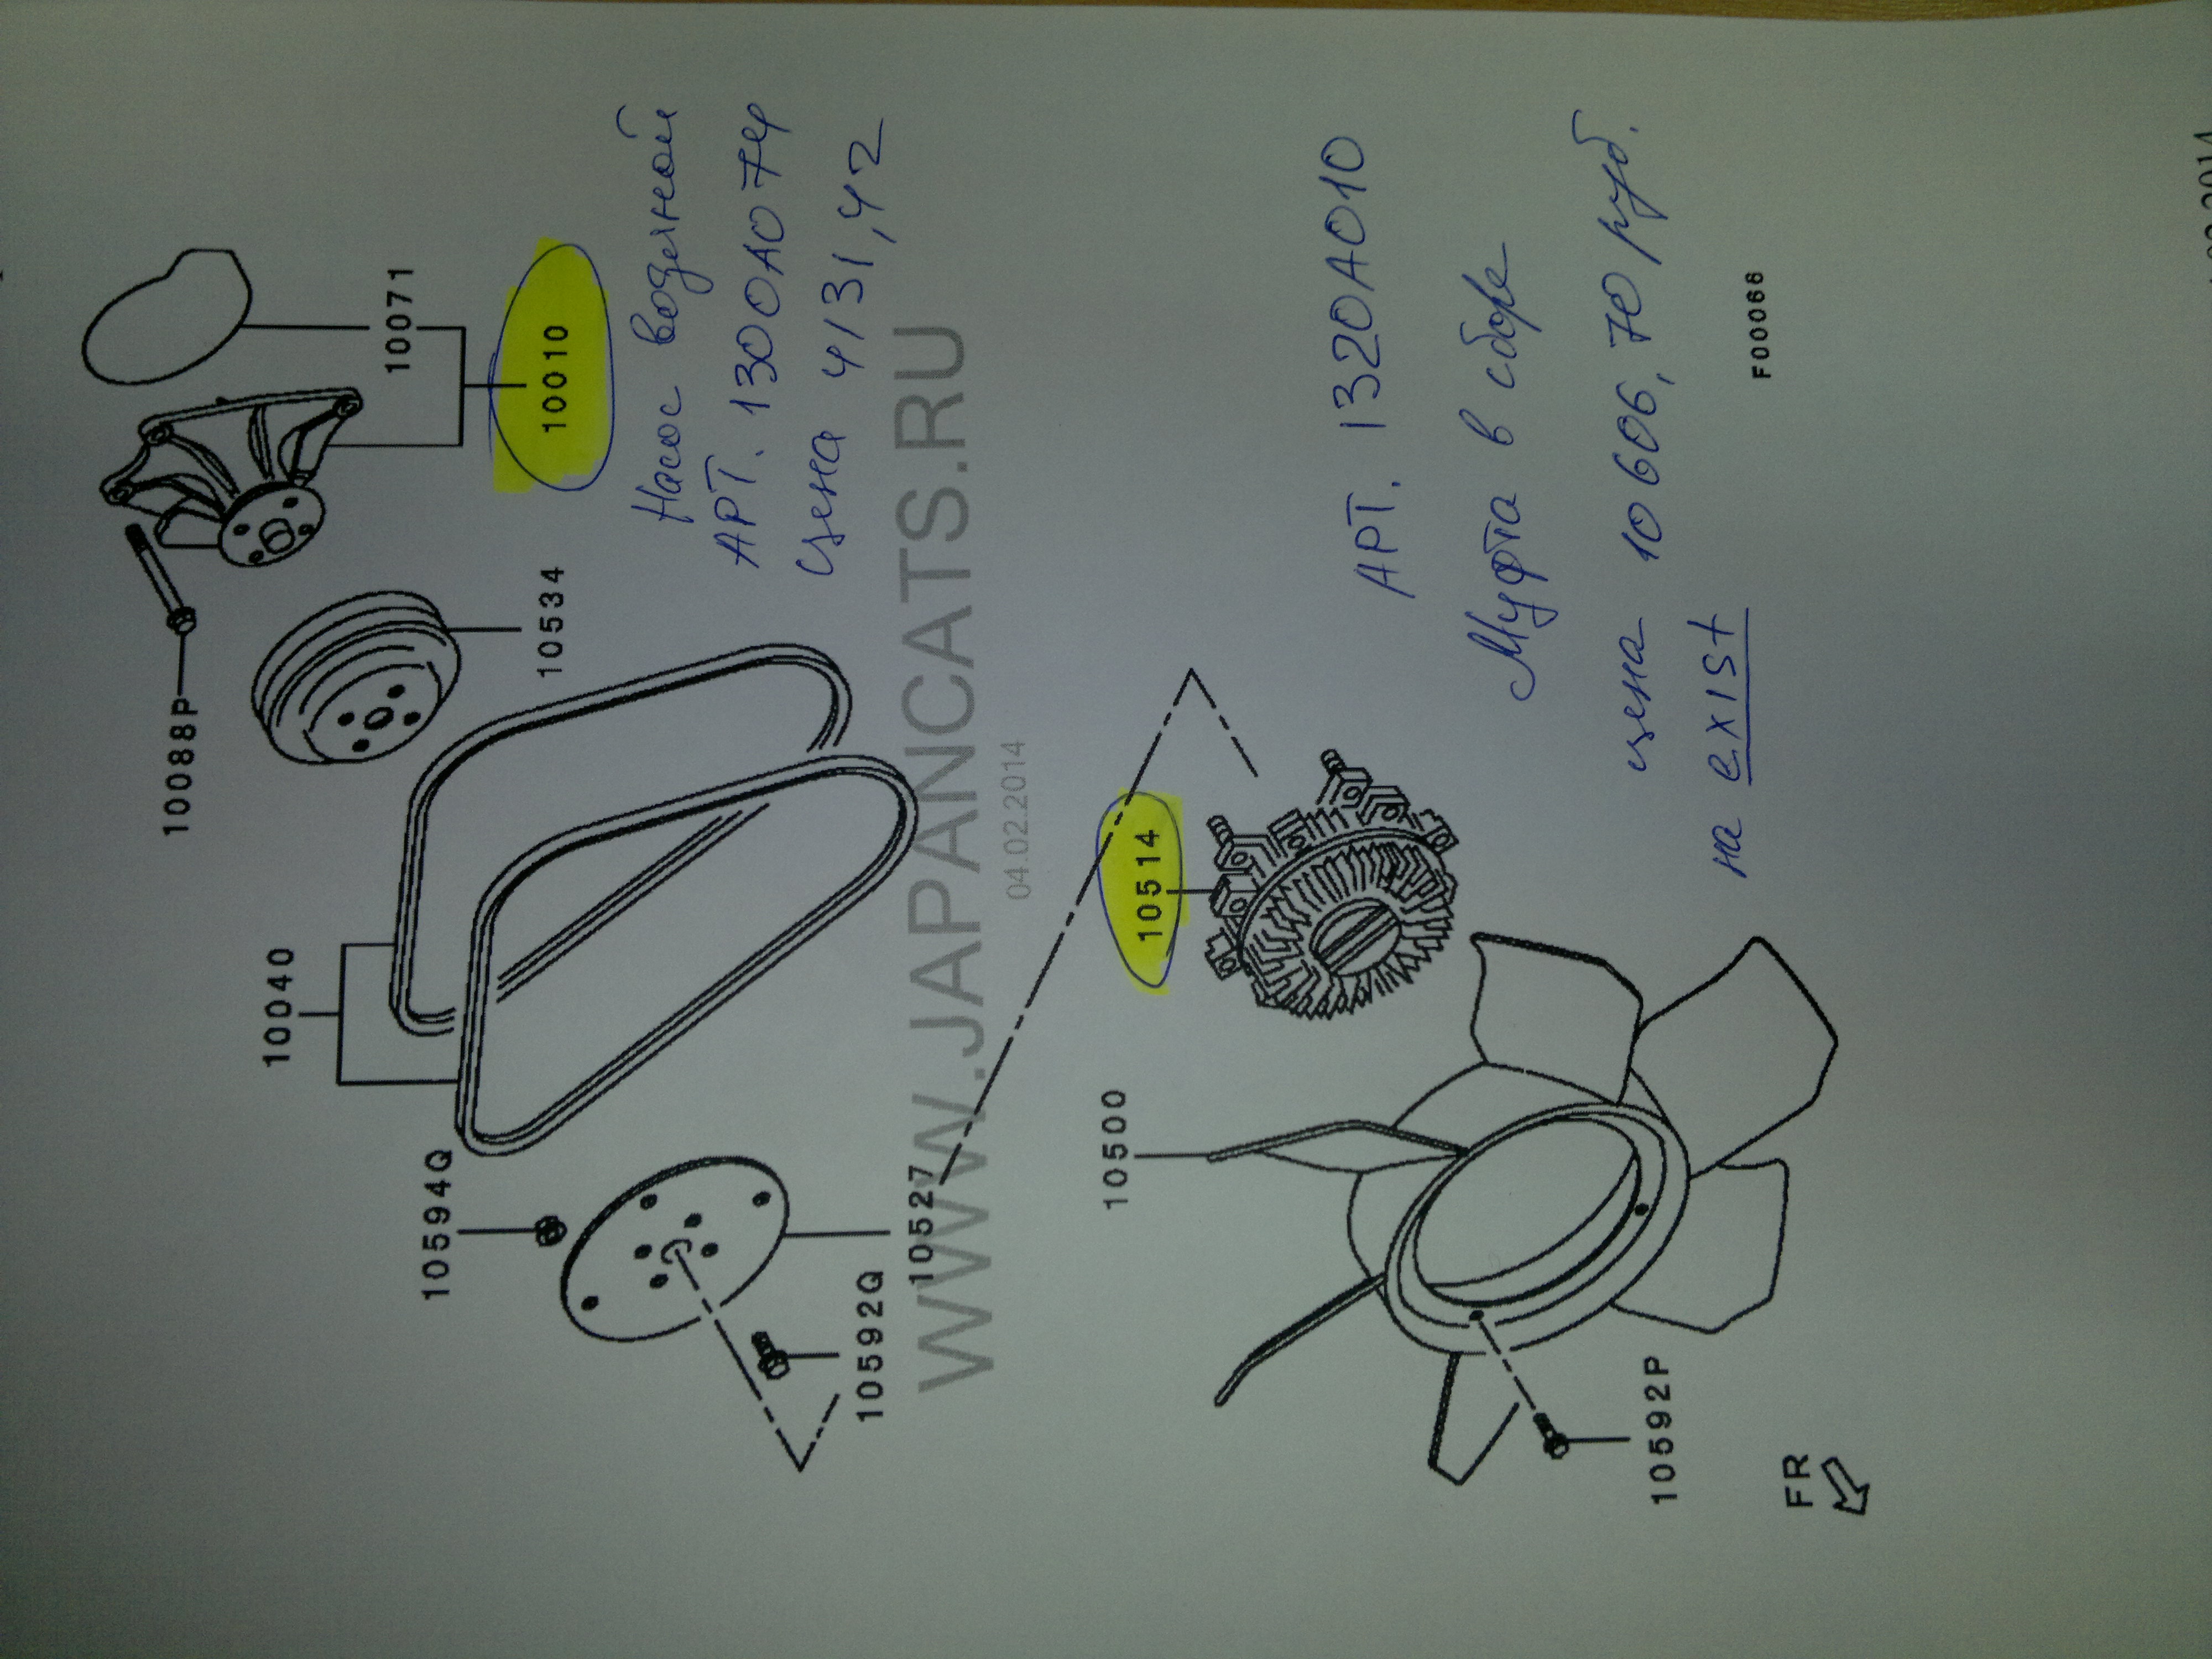 10088P
10040
10071
10594Q
10534
10010
Насос водяной
АРТ. 1300A074
цена 4131,42
10592Q
10527
WWW.JAPANCATS.RU
04.02.2014
10500
10514
АРТ. 1320A010
Муфта в сборе
цена 10606,70 руб.
10592P
на exist
F00066
FR